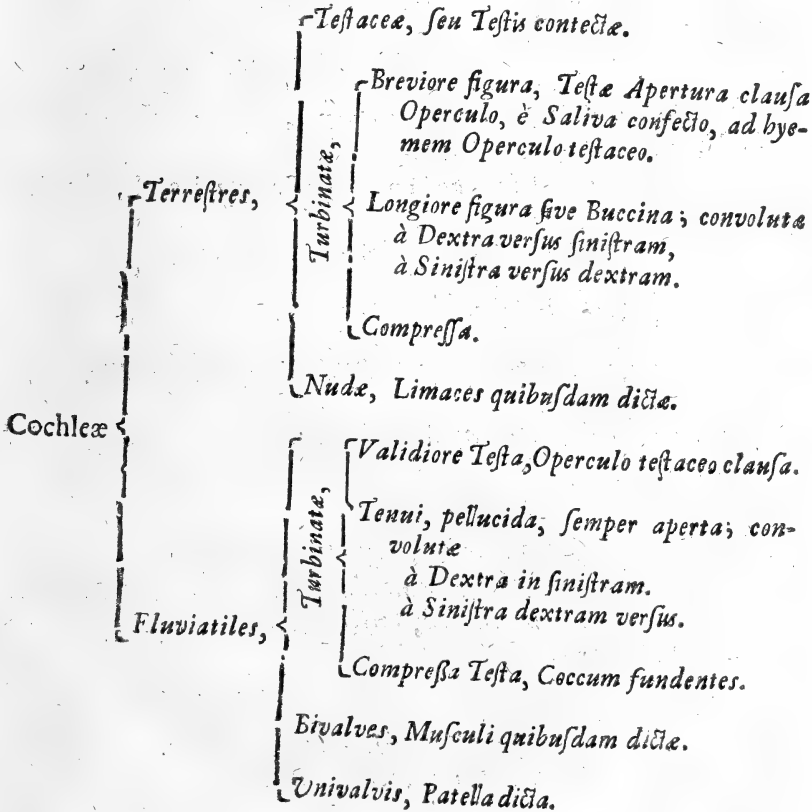 Cochleæ
Terreſtres,
Teſtaceæ, ſeu Teſtis contectæ.
Turbinatæ,
Breviore figura, Teſtæ Apertura clauſa
Operculo, è Saliva confecto, ad hye-
mem Operculo teſtaceo.
Longiore figura ſive Buccina; convolutæ
à Dextra verſus ſiniſtram,
à Siniſtra verſus dextram.
Compreſſa.
Nudæ, Limaces quibuſdam dictæ.
Fluviatiles,
Turbinatæ,
Validiore Teſta, Operculo teſtaceo clauſa.
Tenui, pellucida, ſemper aperta; con-
volutæ
à Dextra in ſiniſtram.
à Siniſtra dextram verſus.
Compreßa Teſta, Coccum fundentes.
Bivalves, Muſculi quibuſdam dictæ.
Univalvis, Patella dicta.